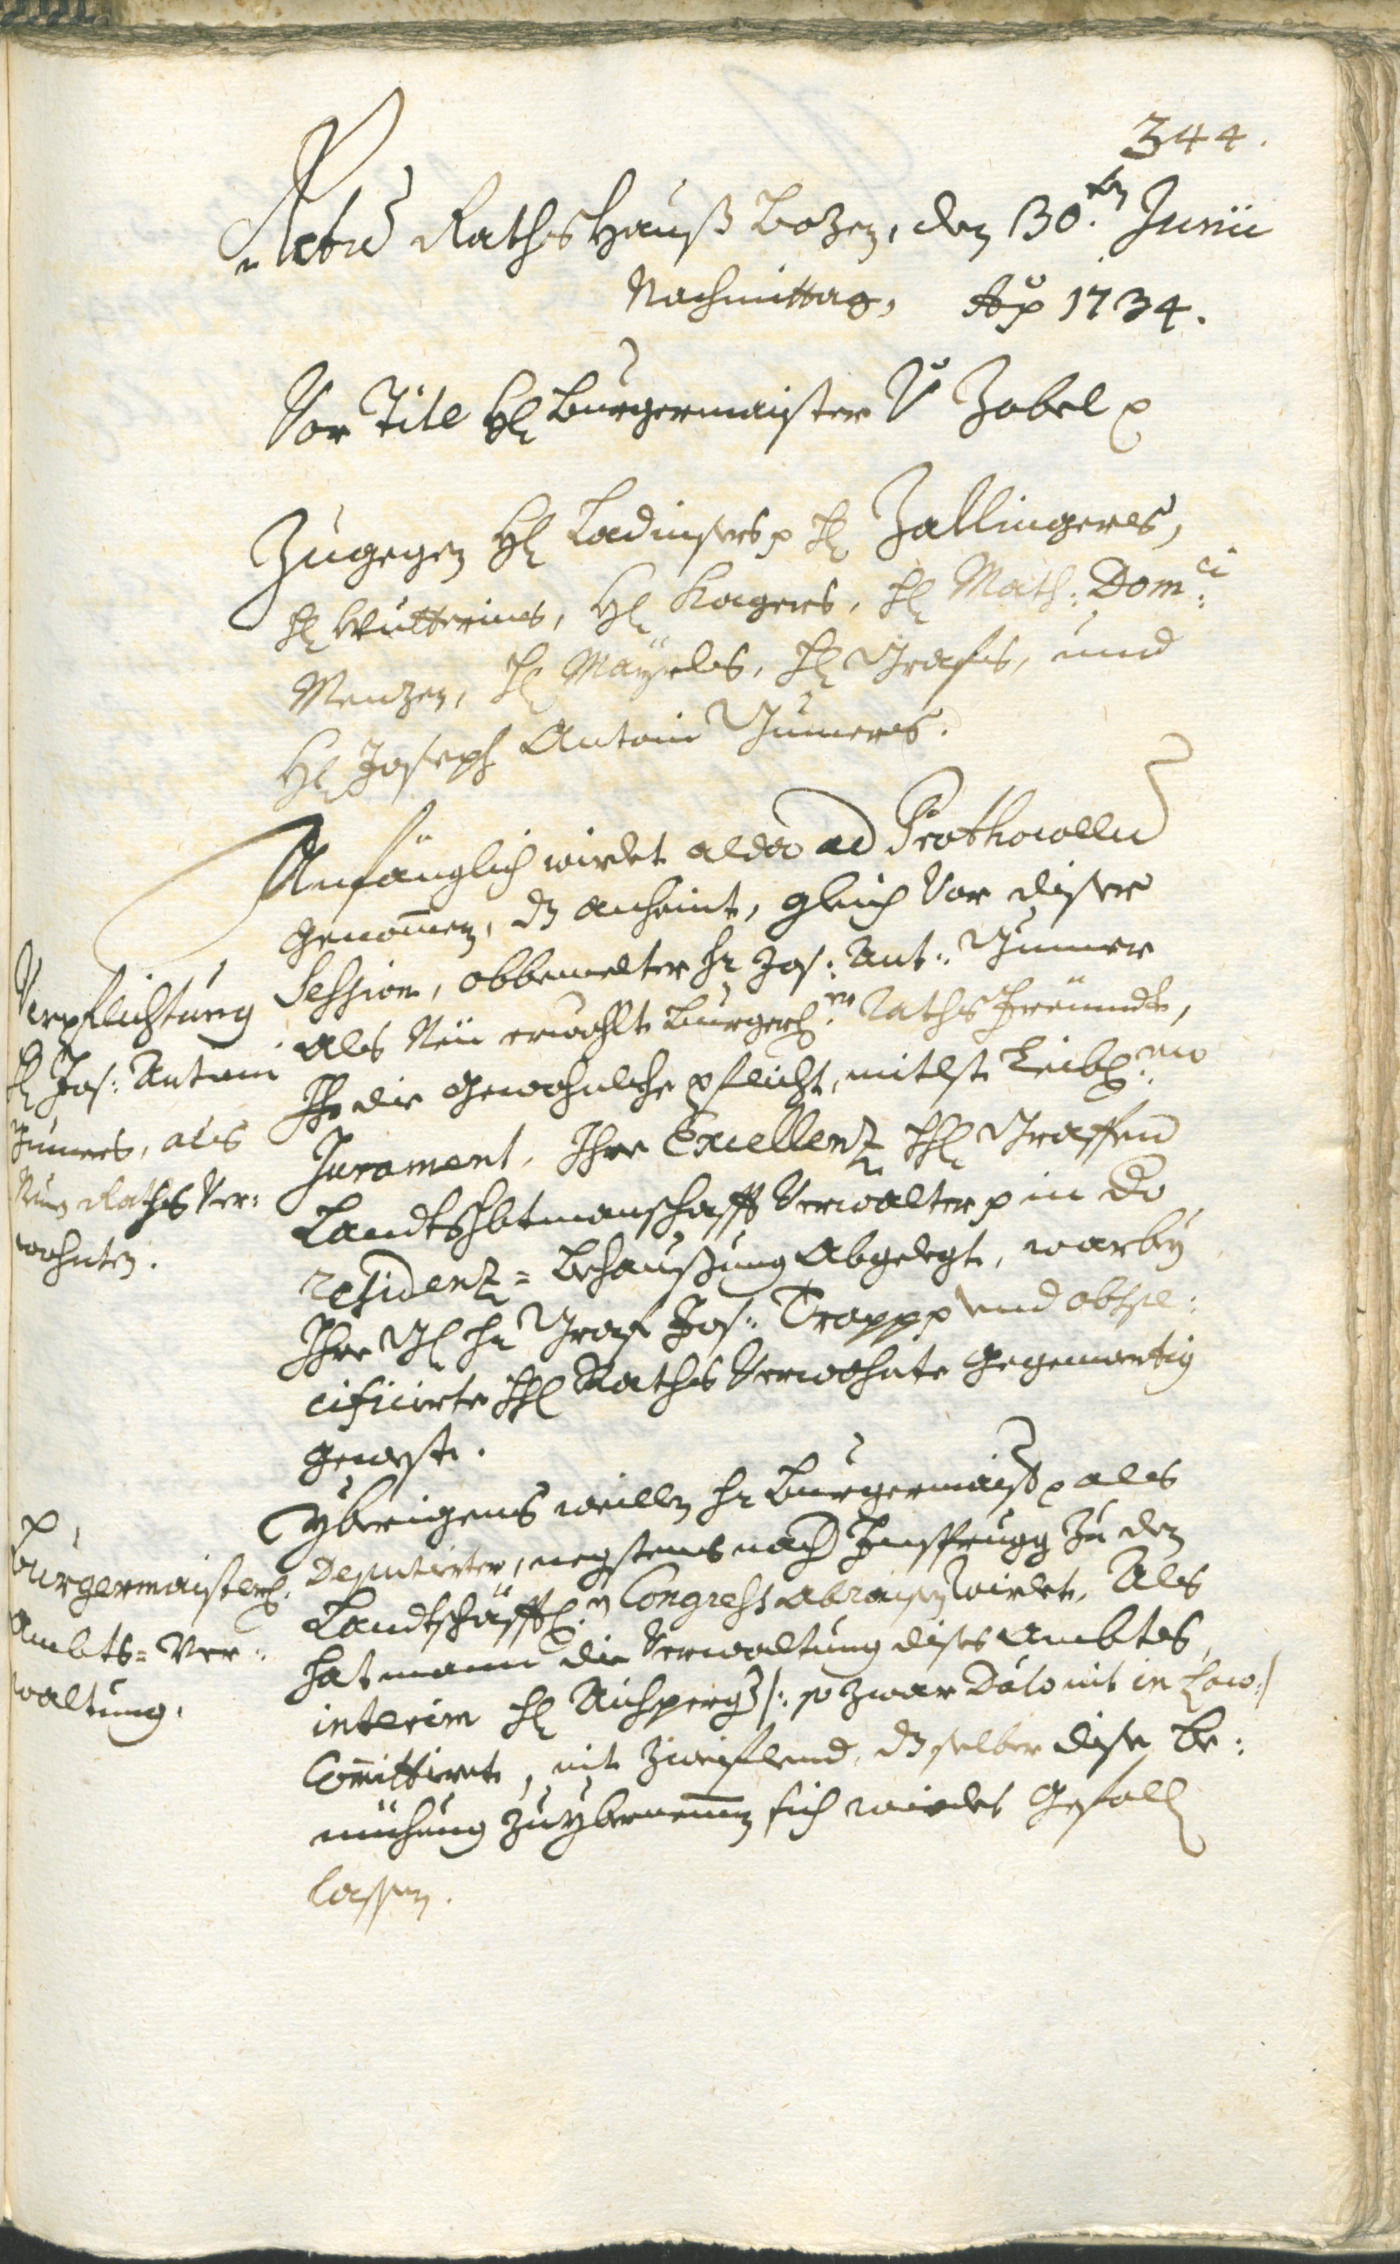 344.
Actu Raths Hauß Bozen, den 30.ten Junii
Nachmittag, Ao 1734.
Vor Titl Hl Burgermaister V Zobel p
Zugegen Hl Ladinsers p Hl Zallingers,
Hl Kagers, Hl Math: Dom:ci
Menzen, Hl Mayrls, Hl Grafs, und
Hl Joseph Antoni Gumers.
Anfänglich wirdet alda ad Prothocollu
genomen, dz anheint, gleich Vor diser
Session, obbemelter Hr Jos: Ant: Gumer
als Neu erwohlte Burgerl:er Raths Freundt,
die gewohnliche pflicht, mitlst Leibl:en
Jurament, Ihro Excellenz Hl Graffen
Landtshbtmanschafft Verwalter p in do
residenz= Behaußung Abgelegt, warbey
Ihro Gl Hr Graf Jos: Trapp p und obspe:
cificierte Hl Raths Verwohnte gegenwertig
gewest.
Verpflichtung
Hl Jos: Antoni
Gumers, als
Neuen Raths Ver:
wohnten.
Yberigens weillen Hr Burgermaist p als
Deputierter, negstens nach Insprugg zu den
Landtschäfftl:n Congress abraisen wirdet, Als
hat mann die Verwaltung dises Ambts
interim Hl Aichperg /: so zwar Dato nit in Loco :/
Comittiert, nit zweiflend, dz selber dise Be:
müehung zu ybernemen sich wirdet gefalln
lassen.
Burgermaisterl:
Ambts= Ver:
waltung.